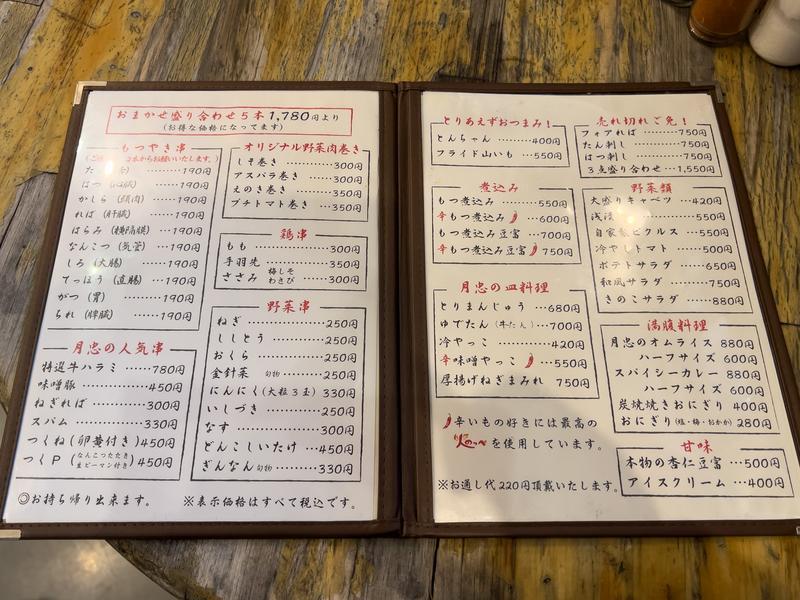 おまかせ盛り合わせ5本1,780円より
(お得な価格になってます)
もつやき串
2本からお願いいたします。)
た 190円
はつ (心臓) 190円
かしら (頬肉) 190円
れば (肝臓) 190円
はらみ (横隔膜) 190円
なんこつ (気管) 190円
しろ (大腸) 190円
てっぽう (直腸) 190円
がつ (胃) 190円
ちれ (脾臓) 190円
月忠の人気串
特選牛ハラミ 780円
味噌豚 450円
ねぎれば 300円
スパム 330円
つくね(卵黄付き) 450円
つくP (なんこつたたき生ピーマン付き) 450円
◎お持ち帰り出来ます。
オリジナル野菜肉巻き
しそ巻き 300円
アスパラ巻き 300円
えのき巻き 350円
プチトマト巻き 350円
鶏串
もも 300円
手羽先 350円
ささみ 梅しそ わさび 300円
野菜串
ねぎ 250円
ししとう 250円
おくら 250円
金針菜 旬物 250円
にんにく(大粒3玉) 330円
いしづき 250円
なす 300円
どんこしいたけ 450円
ぎんなん 旬物 330円
※表示価格はすべて税込です。
とりあえずおつまみ!
とんちゃん 400円
フライド山いも 550円
煮込み
もつ煮込み 500円
辛もつ煮込み 600円
もつ煮込み豆富 700円
辛もつ煮込み豆富 750円
月忠の皿料理
とりまんじゅう 680円
ゆでたん (牛たん) 700円
冷やっこ 420円
辛味噌やっこ 550円
厚揚げねぎまみれ 750円
辛いもの好きには最高の
を使用しています。
※お通し代220円頂戴いたします。
売れ切れご免!
フィアれば 750円
たん刺し 750円
はつ刺し 750円
3点盛り合わせ 1,550円
野菜類
大盛りキャベツ 420円
浅漬 550円
自家製ピクルス 550円
冷やしトマト 500円
ポテトサラダ 650円
和風サラダ 750円
きのこサラダ 880円
満腹料理
月忠のオムライス 880円
ハーフサイズ 600円
スパイシーカレー 880円
ハーフサイズ 600円
炭焼焼きおにぎり 400円
おにぎり(鮭・梅・おかか) 280円
甘味
本物の杏仁豆富 500円
アイスクリーム 400円